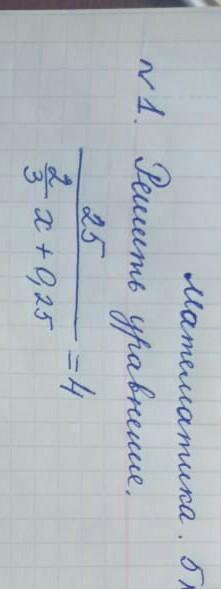 Математика. 5
№ 1. Решить уравнение.
25
2/3 x + 0,25 = 4